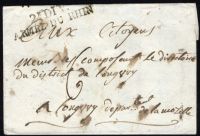 2E DI
ARMÉE DU RHIN
Aux Citoyens
composant le directoire
du district de Longwy
9
a Longwy departt. de la mozelle